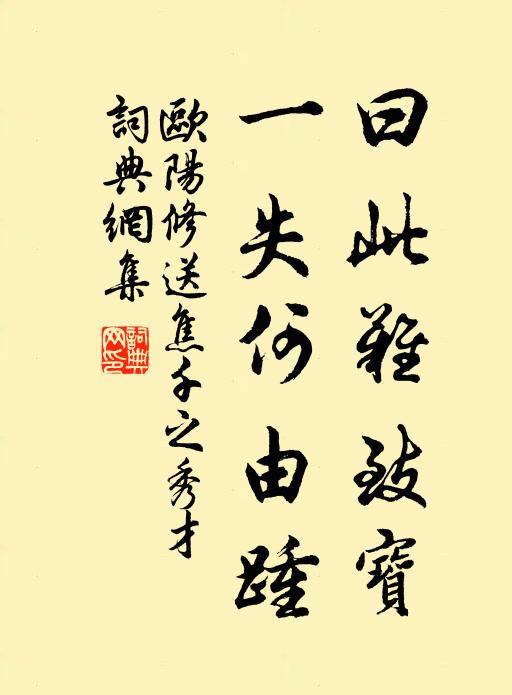 曰此難致寶
一失何由踵
歐陽修送焦千之秀才
詞典網集
詞典網印